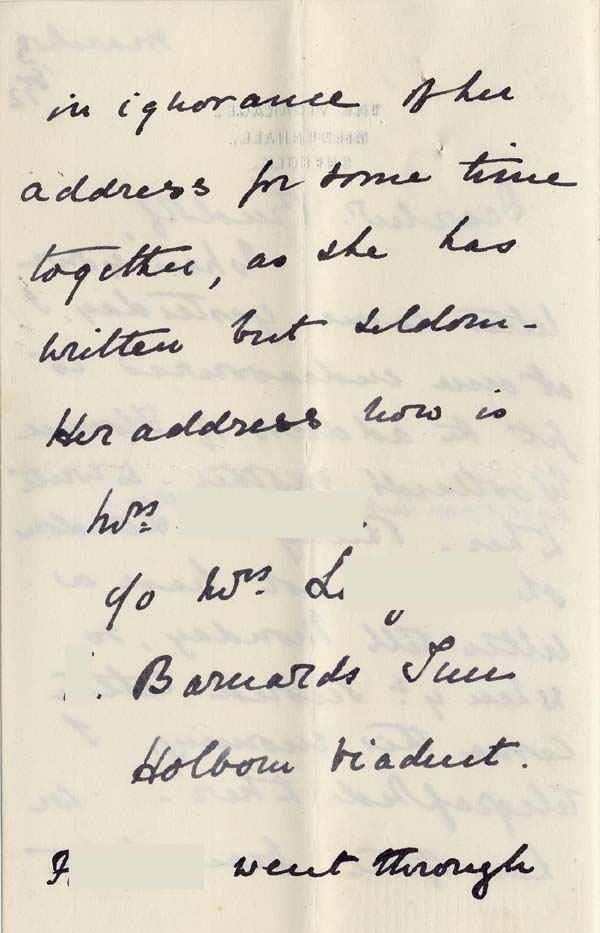 in ignorance of her
address for some time
together, as she has
written but seldom -
Her address now is
Mrs.
c/o Mrs.
Barnards Inn
Holborn Viaduct.
went through